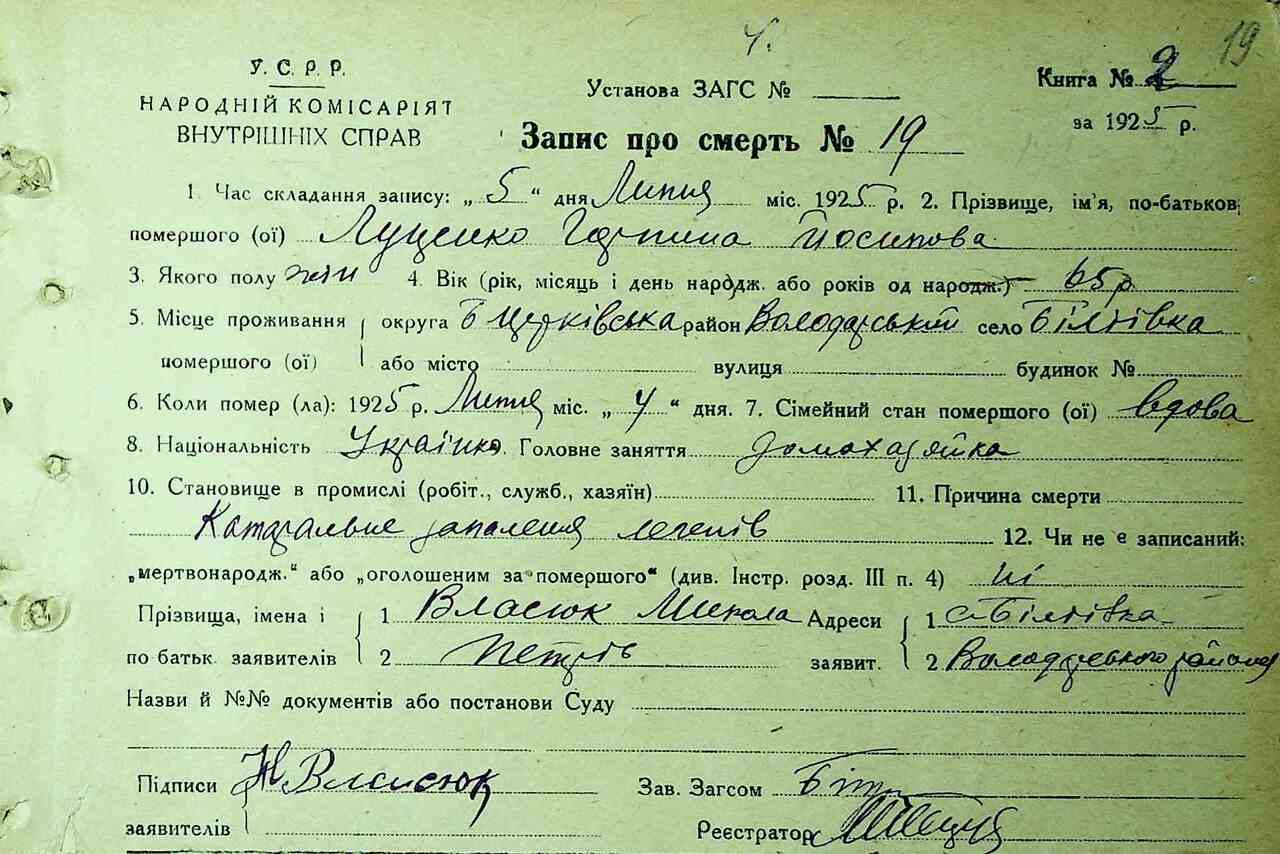 19
У. С. Р. Р.
НАРОДНІЙ КОМІСАРІЯТ
ВНУТРІШНІХ СПРАВ
Установа ЗАГС №
Книга № 2
за 1925 р.
Запис про смерть № 19
1. Час складання запису: „ 5 “ дня Липня міс. 1925 р. 2. Прізвище, ім'я, по-батькові
помершого (ої) Луценко Горпина Йосипова
3. Якого полу жін 4. Вік (рік, місяць і день народж. або років од народж.) 65 р
5. Місце проживання округа Б Церківська район Володарський село Біліївка
помершого (ої) або місто вулиця будинок №
6. Коли помер (ла): 1925 р. Липня міс. „ 4 “ дня. 7. Сімейний стан помершого (ої) вдова
8. Національність Українка. Головне заняття домохазяйка
10. Становище в промислі (робіт., служб., хазяїн) 11. Причина смерти
Катаральне запалення легенів 12. Чи не є записаний:
„мертвонародж.“ або „оголошеним за помершого“ (див. Інстр. розд. III п. 4) ні
Прізвища, імена і 1 Власюк Микола Адреси 1 с Біліївка
по батьк. заявителів 2 Петрів заявит. 2 Володарського района
Назви й №№ документів або постанови Суду
Підписи Н Власюк Зав. Загсом
заявителів Реєстратор